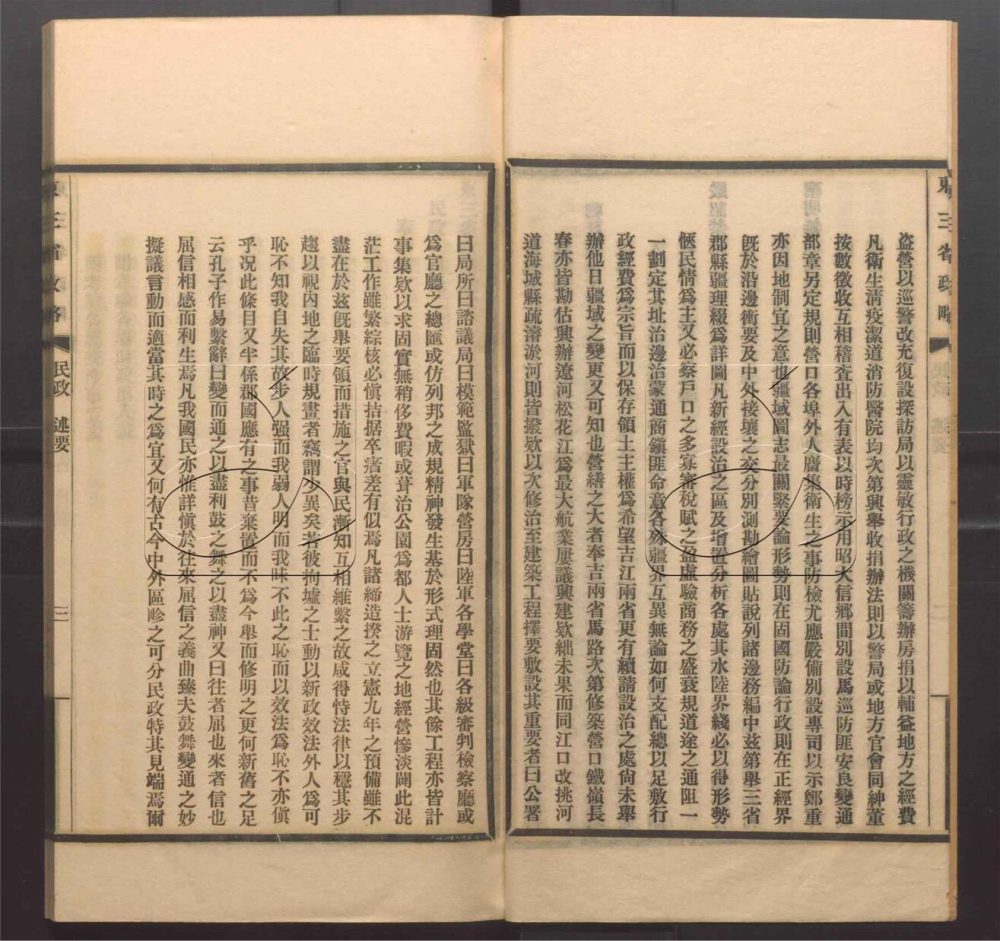 東三省政略
盜營以巡警改充復設探訪局以靈敏行政之機關籌辦房捐以輔益地方之經費
凡衛生清疫潔道消防醫院均次第興舉收捐辦法則以警局或地方官會同紳董
按數徵收互相稽查出入有表以時榜示用昭大信鄉間別設馬巡防匪安良變通
部章另定規則營口各埠外人麕集衛生之事防檢尤應嚴備別設專司以示鄭重
亦因地制宜之意也疆域圖志最關緊要論形勢則在固國防論行政則在正經界
旣於沿邊衝要及中外接壤之交分別測勘繪圖貼說列諸邊務編中茲第舉三省
郡縣疆理綴為詳圖凡新經設治之區及增置分析各處其水陸界綫必以得形勢
愜民情為主又必察戶口之多寡審稅賦之盈虛驗商務之盛衰規道途之通阻一
一劃定其址治邊治蒙通商鎮匪命意各殊疆界互異無論如何支配總以足敷行
政經費為宗旨而以保存領土主權為希望吉江兩省更有續請設治之處尙未舉
辦他日疆域之變更又可知也營繕之大者奉吉兩省馬路次第修築營口鐵嶺長
春亦皆勘估興辦遼河松花江為最大航業屢議興建欵絀未果而同江口改挑河
道海城縣疏濬淤河則皆撥欵以次修治至建築工程擇要敷設其重要者曰公署
曰局所曰諮議局曰模範監獄曰軍隊營房曰陸軍各學堂曰各級審判檢察廳或
為官廳之總匯或仿列邦之成規精神發生基於形式理固然也其餘工程亦皆計
事集欵以求固實無稍侈費暇或葺治公園為都人士游覽之地經營慘淡闢此混
茫工作雖繁綜核必愼拮据卒瘏差有似焉凡諸締造揆之立憲九年之預備雖不
盡在於茲旣舉要領而措施之官與民漸知互相維繫之故咸得恃法律以穩其步
趨以視內地之臨時規畫者竊謂少異矣若彼拘墟之士動以新政效法外人為可
恥不知我自失其故步人强而我弱人明而我昧不此之恥而以效法為恥不亦傎
乎況此條目又半係郡國應有之事昔棄置而不為今舉而修明之更何新舊之足
云孔子作易繫辭曰變而通之以盡利鼓之舞之以盡神又曰往者屈也來者信也
屈信相感而利生焉凡我國民亦惟詳愼於往來屈信之義曲臻夫鼓舞變通之妙
擬議言動而適當其時之為宜又何有古今中外區畛之可分民政特其見端焉爾
東三省政略
民政 述要
三